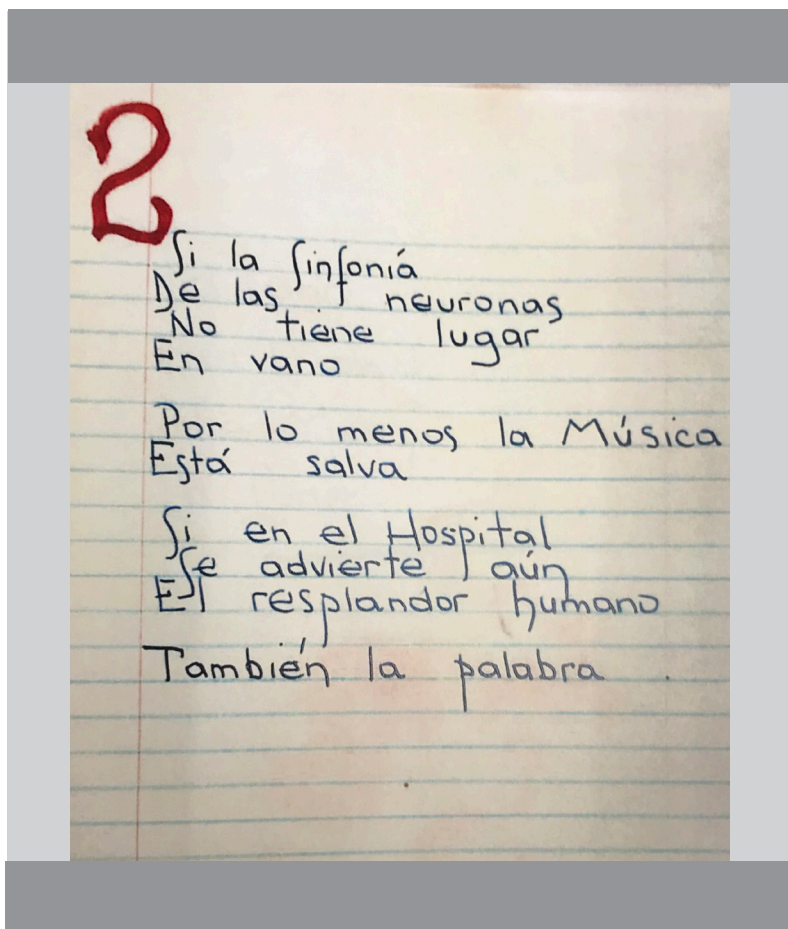 2
Si la Sinfonía
De las neuronas
No tiene lugar
En vano
Por lo menos la Música
Está salva
Si en el Hospital
Se advierte aún
El resplandor humano
También la palabra